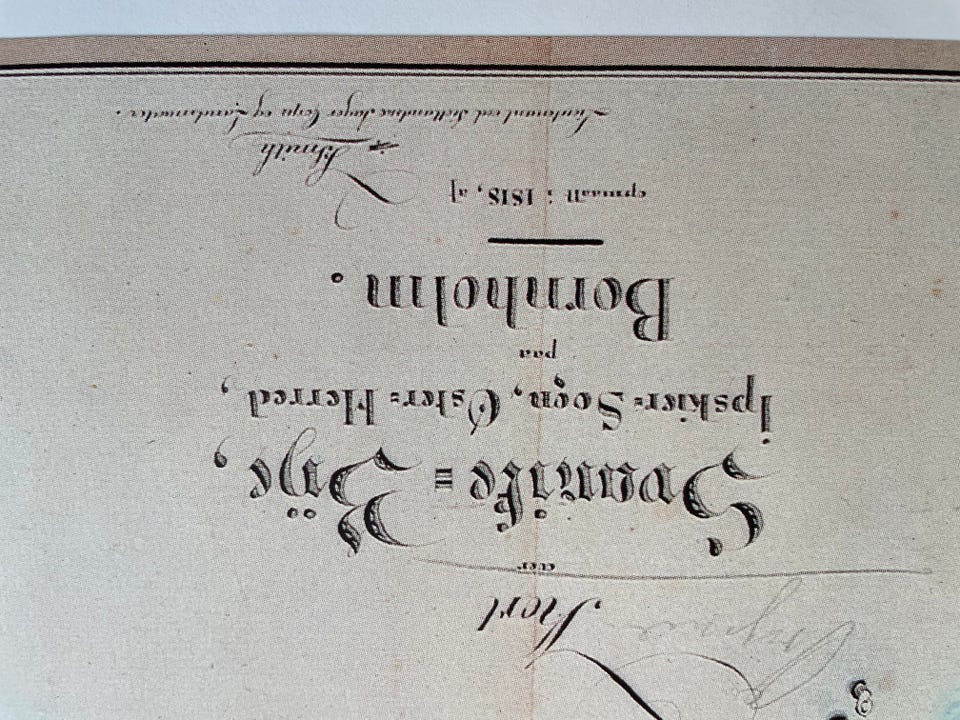 Kort
over
Svanike=Bÿe,
Ipskier=Sogn, Øster=Herred,
paa
Bornholm.
opmaalt i 1818, af
Smith
Lieutenant ved Siellandske Jæger Corps og Landmaaler.